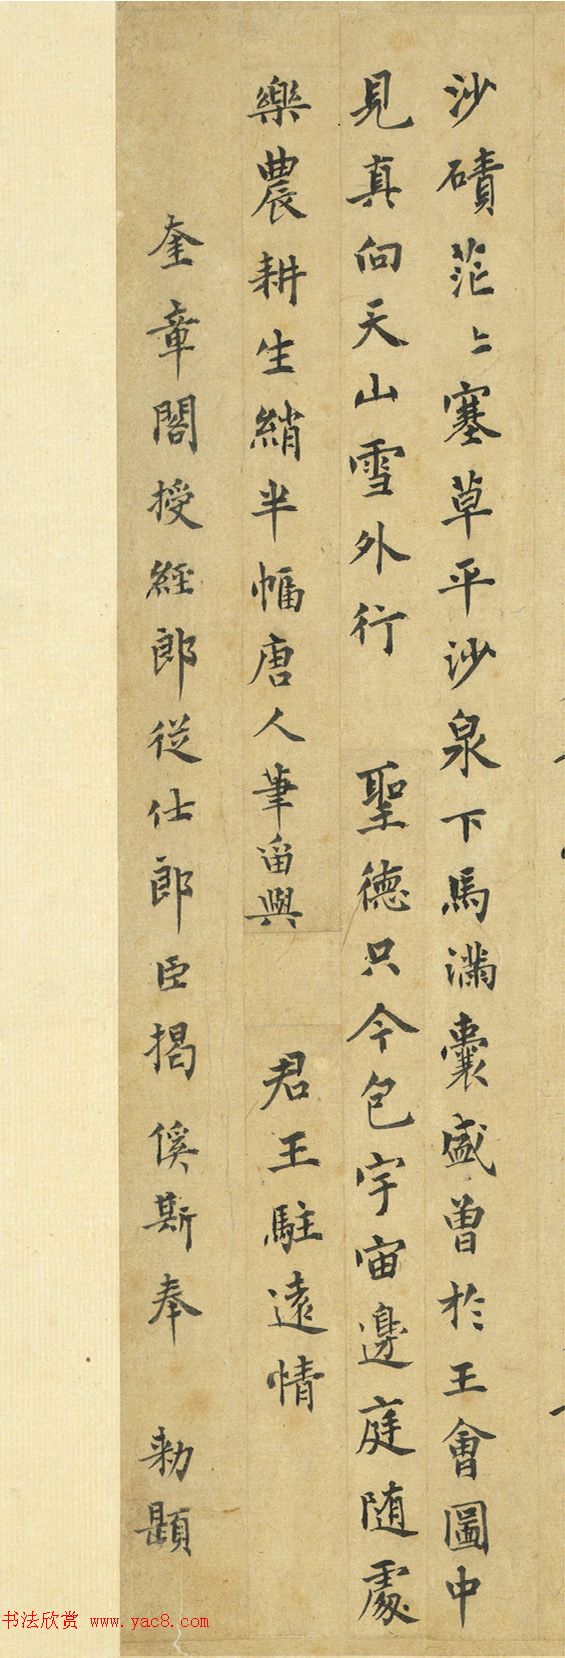 沙磧茫〻塞草平沙泉下馬滿囊盛曽於王會圖中
見真向天山雪外行 聖德只今包宇宙邊庭随處
樂農耕生綃半幅唐人筆畱與 君王駐遠情
奎章閣授經郎從仕郎臣揭傒斯奉 勑題
书法欣赏 www.yac8.com